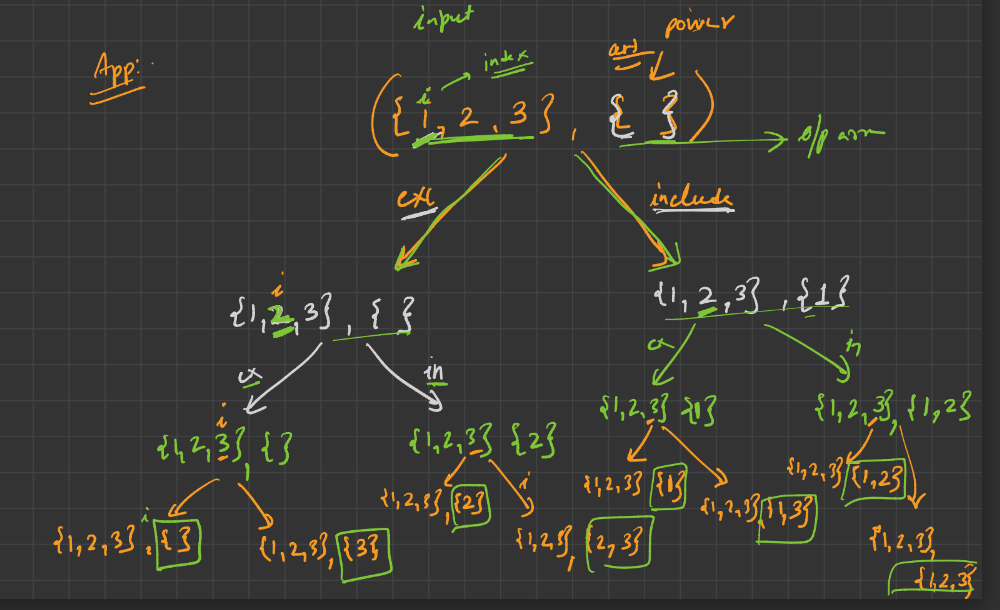 input
power
App:
arr
i
index
( { 1, 2, 3 } , { } )
o/p arr
exc
include
i
{1, 2, 3} , { }
{1, 2, 3} , {1}
ex
in
ex
in
i
{1, 2, 3}, { }
{1, 2, 3} {2}
{1, 2, 3} {1}
{1, 2, 3}, {1, 2}
{1, 2, 3} , i { }
{1, 2, 3}, {3}
{1, 2, 3}, {2}
i
{1, 2, 3}, {2, 3}
{1, 2, 3} {1}
{1, 2, 3} {1, 3}
{1, 2, 3} {1, 2}
{1, 2, 3},
{1, 2, 3}